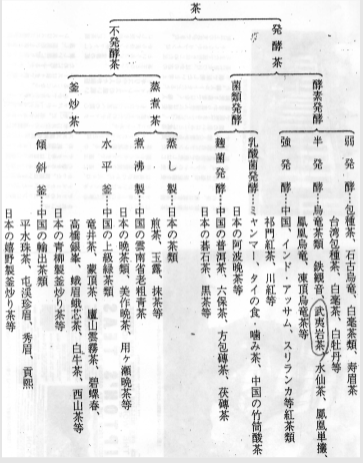 茶
発酵茶
不発酵茶
酵素発酵
菌類発酵
蒸煮茶
釜炒茶
弱発酵
包種茶 石古烏竜、白毫茶類、寿眉茶
台湾包種茶、白毫茶、白牡丹等
半発酵
烏竜茶類 鉄観音、武夷岩茶、水仙茶、鳳凰単叢、
鳳凰烏竜、凍頂烏竜茶等
強発酵
中国、インド・アッサム、スリランカ等紅茶類
祁門紅茶、川紅等
乳酸菌発酵
ミャンマー、タイの食・噛み茶、中国の竹筒酸茶
日本の阿波晩茶等
麹菌発酵
中国の普洱茶、六保茶、方包磚茶、茯磚茶
日本の碁石茶、黒茶等
蒸し製
日本の茶類
煎茶、玉露、抹茶等
煮沸製
中国の雲南省老粗青茶
日本の晩茶類、美作晩茶、用ヶ瀬晩茶等
水平釜
中国の上級緑茶類
竜井茶、蒙頂茶、廬山雲霧茶、碧螺春、
高橋銀峯、峨眉峨芯茶、白牛茶、西山茶等
日本の青柳製釜炒り茶等
傾斜釜
中国の輸出茶類
平水珠茶、屯渓珍眉、秀眉、貢熙
日本の嬉野製釜炒り茶等